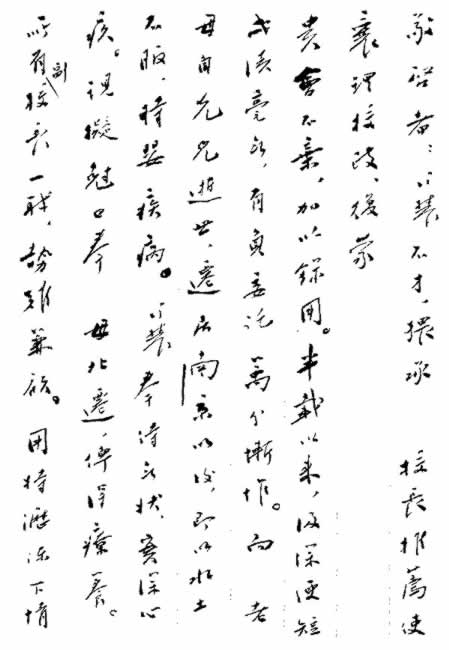 敬啓者：不才，猥承 校長推薦使
襄理校政，後蒙
貴會不棄，加以錄用。半載以來，汲深綆短
成績毫無，有負委託萬分慚怍。而老
母自先兄逝世，遷居南京以後，即以水土
不服，時嬰疾病。奉侍無狀，實深心
疚。現擬尅日奉 母北遷，俾得療養。
所有副校長一職，勢難兼顧。用特瀝陳下情